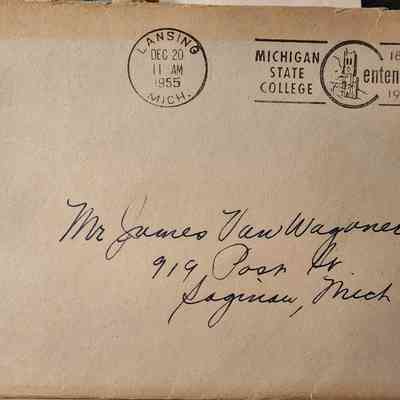 LANSING
DEC 20
11 AM
1955
MICH.
MICHIGAN
STATE
COLLEGE
18
entenn
19
Mr James Van Wagoner
919 Post St
Saginaw, Mich